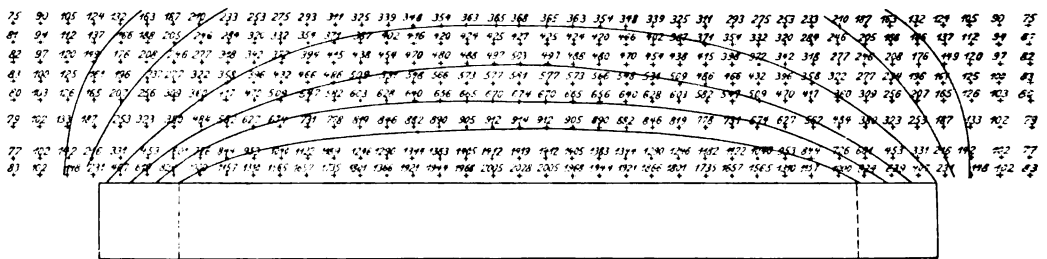 75 90 105 124 132 163 187 210 233 253 275 293 311 325 339 348 354 363 365 368 365 363 354 348 339 325 311 293 275 253 233 210 187 163 132 124 105 90 75
81 94 112 137 166 188 205 246 284 320 332 354 371 387 402 416 420 424 425 427 425 424 420 416 402 387 371 354 332 320 284 246 205 188 166 137 112 94 81
82 97 120 149 176 208 246 277 318 342 372 394 415 438 454 470 480 488 497 503 497 488 480 470 454 438 415 398 372 342 318 277 246 208 176 149 120 97 82
83 100 125 161 196 277 322 358 396 432 466 486 509 531 548 566 573 577 581 577 573 566 548 531 509 486 466 432 396 358 322 277 234 196 161 125 100 83
80 103 126 165 207 256 309 360 417 470 509 547 582 603 628 640 656 665 670 674 670 665 656 640 628 603 582 547 509 470 417 360 309 256 207 165 126 103 80
79 102 133 187 253 323 380 484 562 627 674 731 778 819 846 882 890 905 912 914 912 905 890 882 846 819 778 731 674 627 562 484 380 323 253 187 133 102 79
77 102 142 216 331 453 726 844 953 1040 1122 1246 1290 1344 1383 1405 1412 1419 1412 1405 1383 1344 1290 1246 1182 1122 1040 953 844 726 601 453 331 216 142 102 77
83 102 118 231 407 1157 1565 1657 1735 1801 1944 1968 2005 2028 2005 1968 1944 1921 1866 1801 1735 1657 1565 1157 407 231 118 102 83